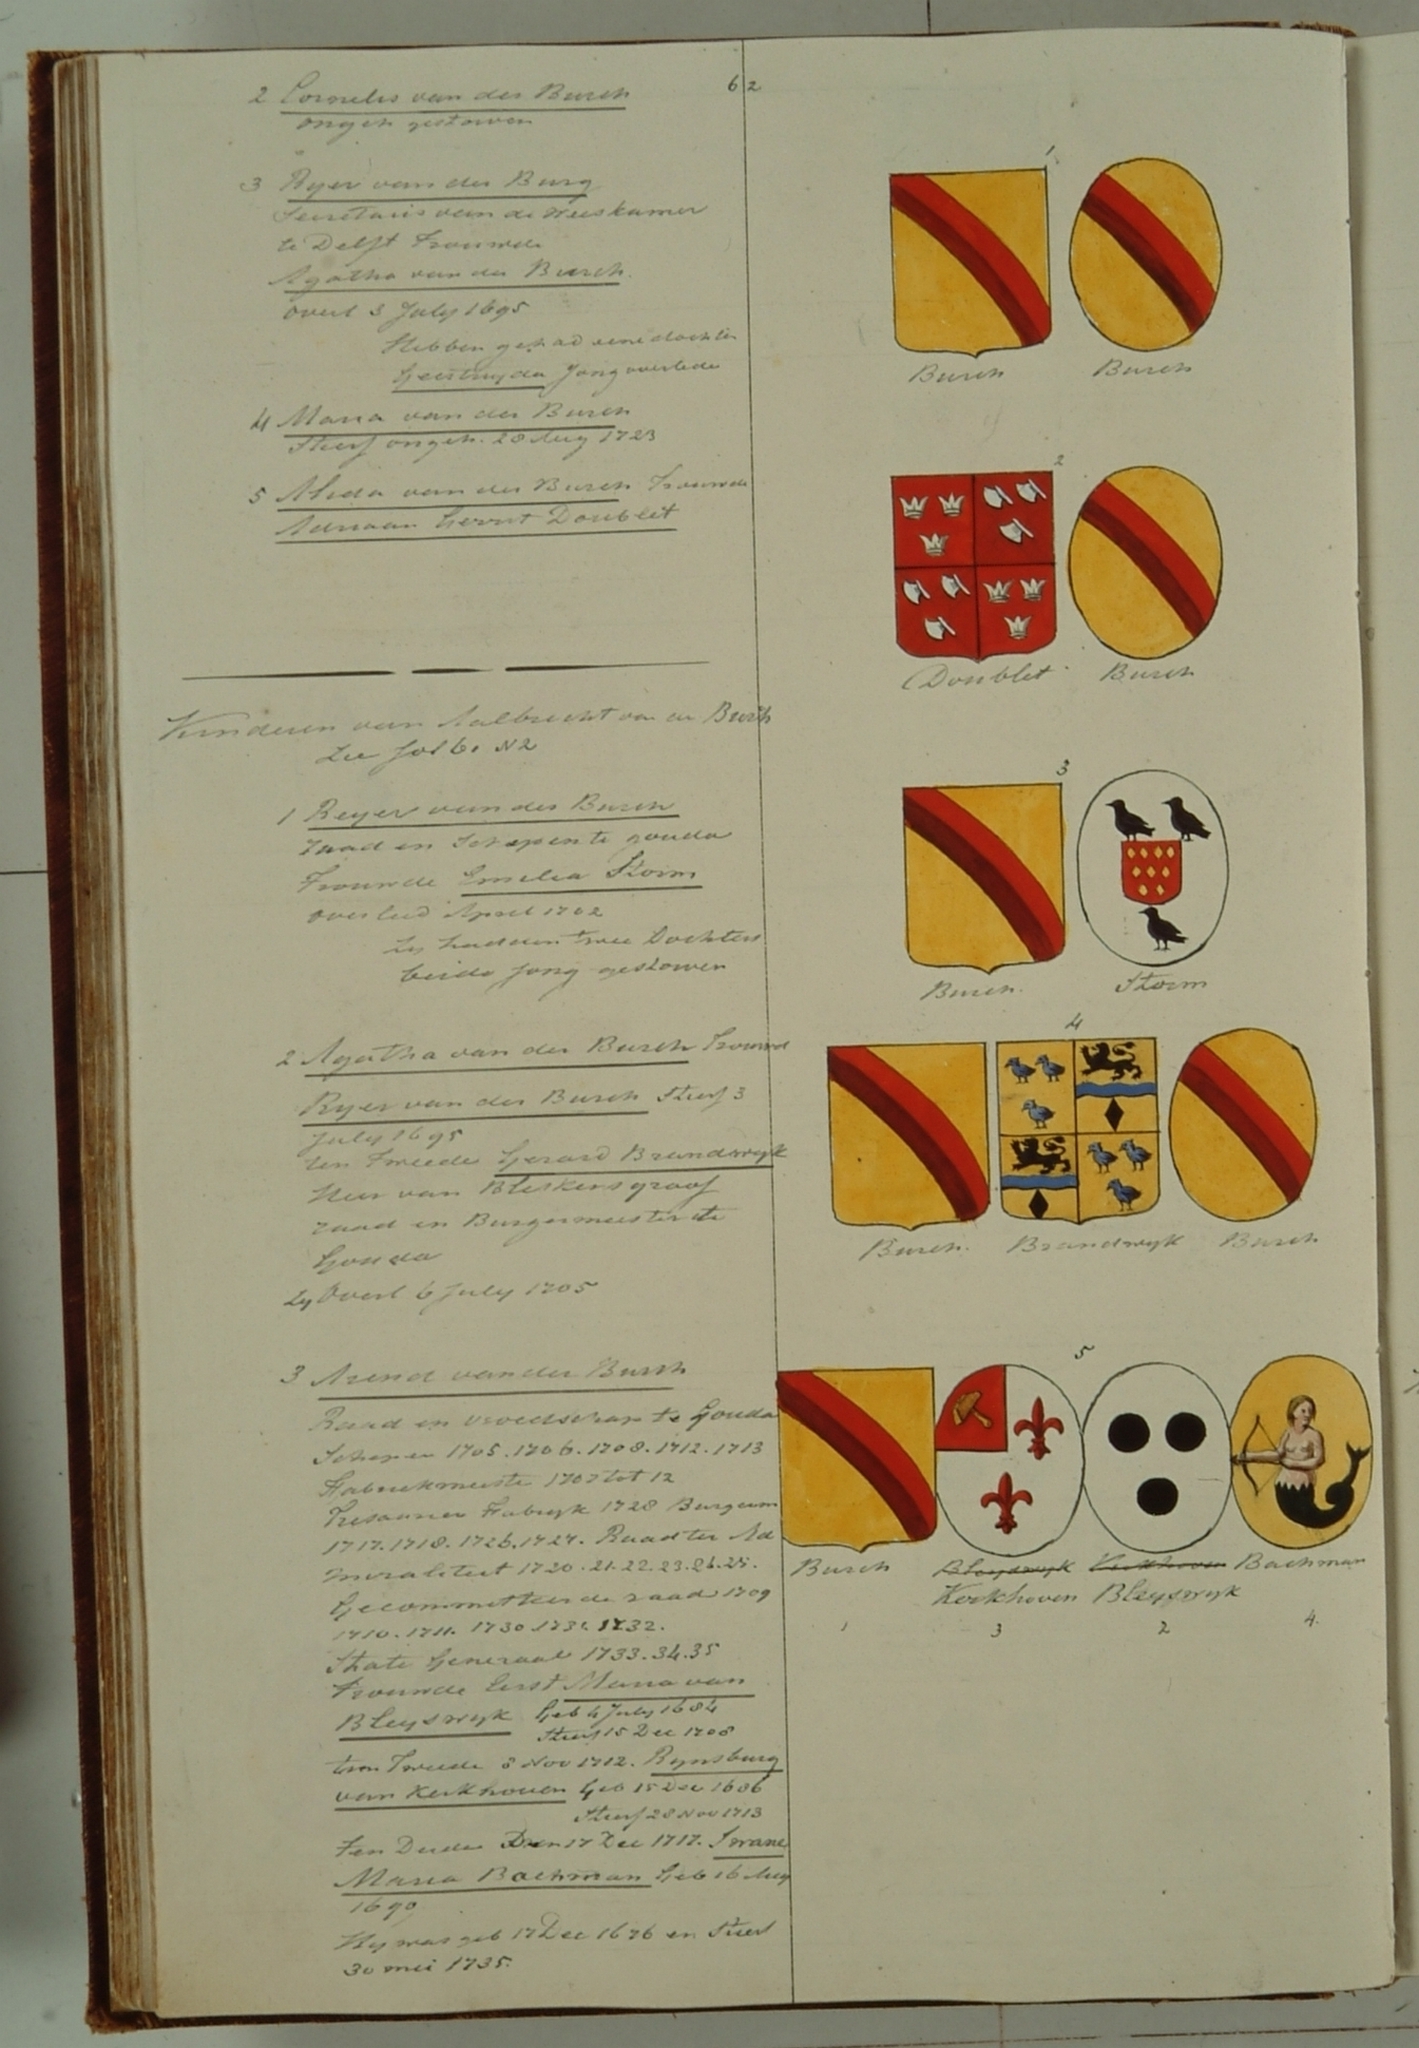 62
2 Cornelis van der Burch
ongeh gestorven
3 Ryer van der Burg
Secretaris van de Weeskamer
te Delft Trouwde
Agatha van der Burch.
overl 3 July 1695
Hebben gehad eene dochter
Geertruyda Jong overlede
4 Maria van der Burch
Stierf ongeh. 28 Aug 1723
5 Alida van der Burch Trouwde
Adriaan Gerrit Doublet
Kinderen van Aalbrecht van der Burch
Zie fol 61 N2
1 Reyer van der Burch
raad en Schepen te gouda
Trouwde Emelia Storm
overleed April 1702
Zy hadden twee Dochters
beide jong gestorven
2 Agatha van der Burch Trouwd
Ryer van der Burch Stierf 3
July 1695
ten Tweede Gerard Brandwyk
Heer van Bleskensgraaf
raad en Burgermeester te
Gouda
Zy Overl 6 July 1705
3 Arend van der Burch
Raad en vroedschap te Gouda
Schepen 1705. 1706. 1708. 1712. 1713
Fabriekmeeste 1707 tot 12
Tresaurier Fabryk 1728 Burgerm
1717. 1718. 1726. 1727. Raad ter Ad
miraliteit 1720. 21. 22. 23. 26. 25.
Gecommitteerde raad 1709
1710. 1711. 1730. 1731. 1732.
State Generaal 1733. 34. 35
trouwde Eerst Maria van
Bleyswyk Geb 4 July 1684
Stierf 15 Dec 1708
ten Tweede 8 Nov 1712. Rynsburg
van Kerkhoven Geb 15 Dec 1686
Stierf 28 Nov 1713
Ten Derde Den 17 Dec 1717.
Maria Bachman Geb 16 Aug
1690
Hy was geb 17 Dec 1676 en Stierf
30 mei 1735.
1
Burch Burch
4
2
Doublet Burch
3
Burch. Storm
4
Burch. Brandwyk Burch
5
Burch Bleyswyk Kerkhoven Bachman
Kerkhoven Bleyswyk
1 3 2 4.